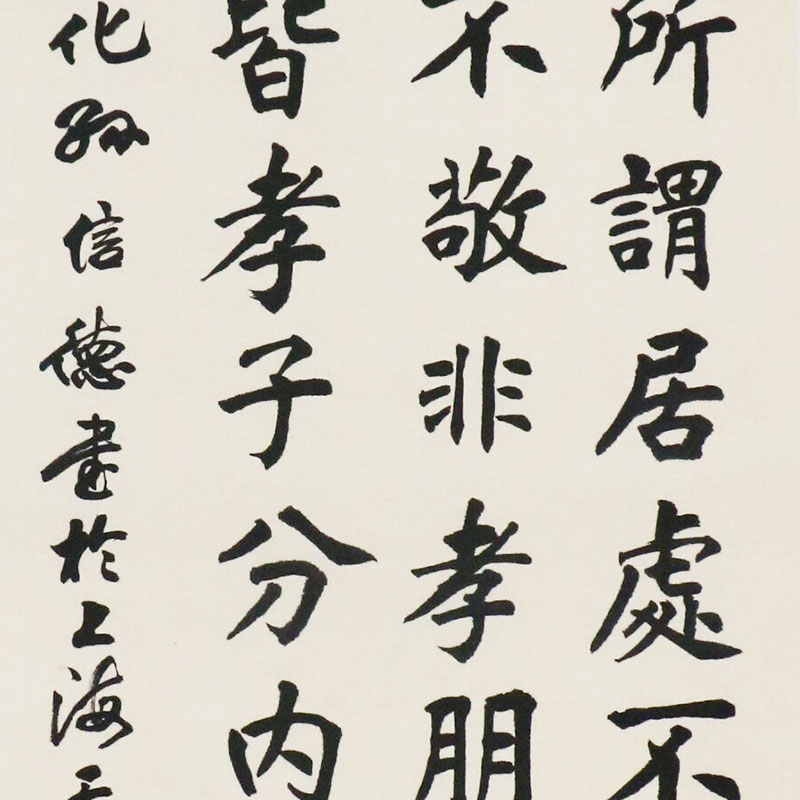 所謂居處不
不敬非孝朋
皆孝子分内
化孙信德書於上海